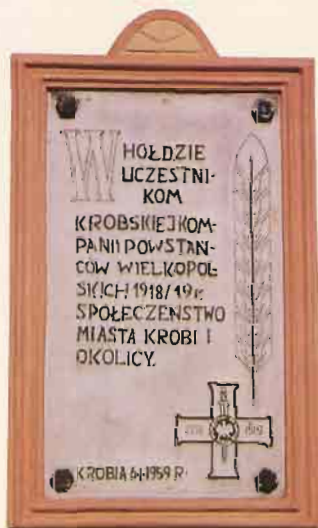 W HOŁDZIE
UCZESTNI-
KOM
KROBSKIEJ KOM-
PANII POWSTAŃ-
CÓW WIELKOPOL-
SKICH 1918/19 r.
SPOŁECZEŃSTWO
MIASTA KROBI I
OKOLICY.
KROBIA 6·I·1959 R·